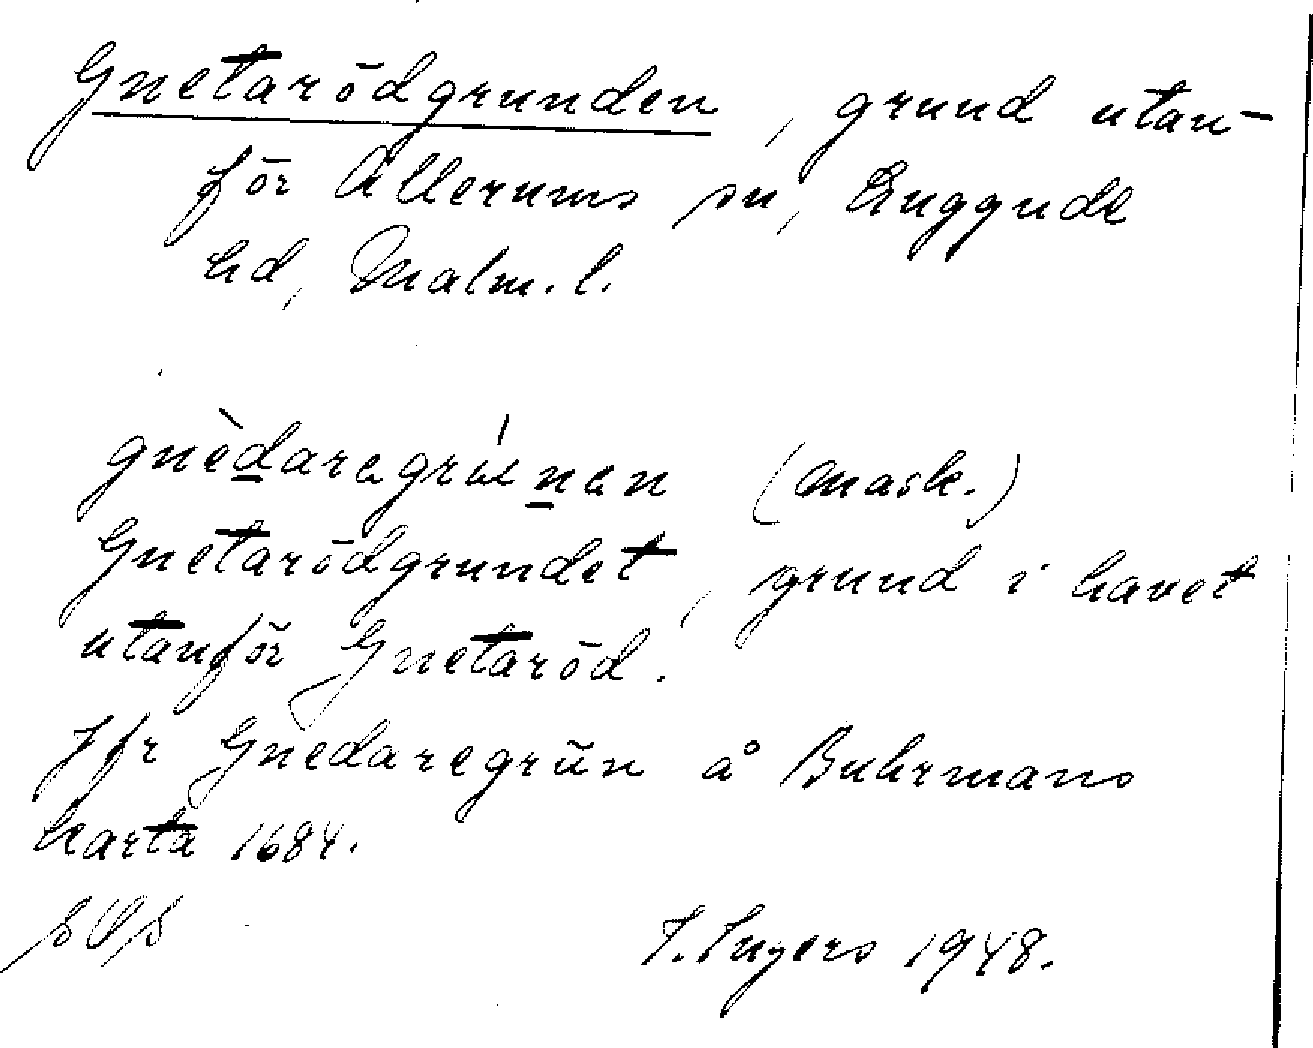 Gnetarödgrunden, grund utan-
för Allerums sn, Luggude
hd, Malm. l.
gnèdaregrúnen (mask.)
Gnetarödgrundet, grund i havet
utanför Gnetaröd.
Jfr Gnedaregrün å Buhrmans
karta 1684.
I. Ingers 1948.